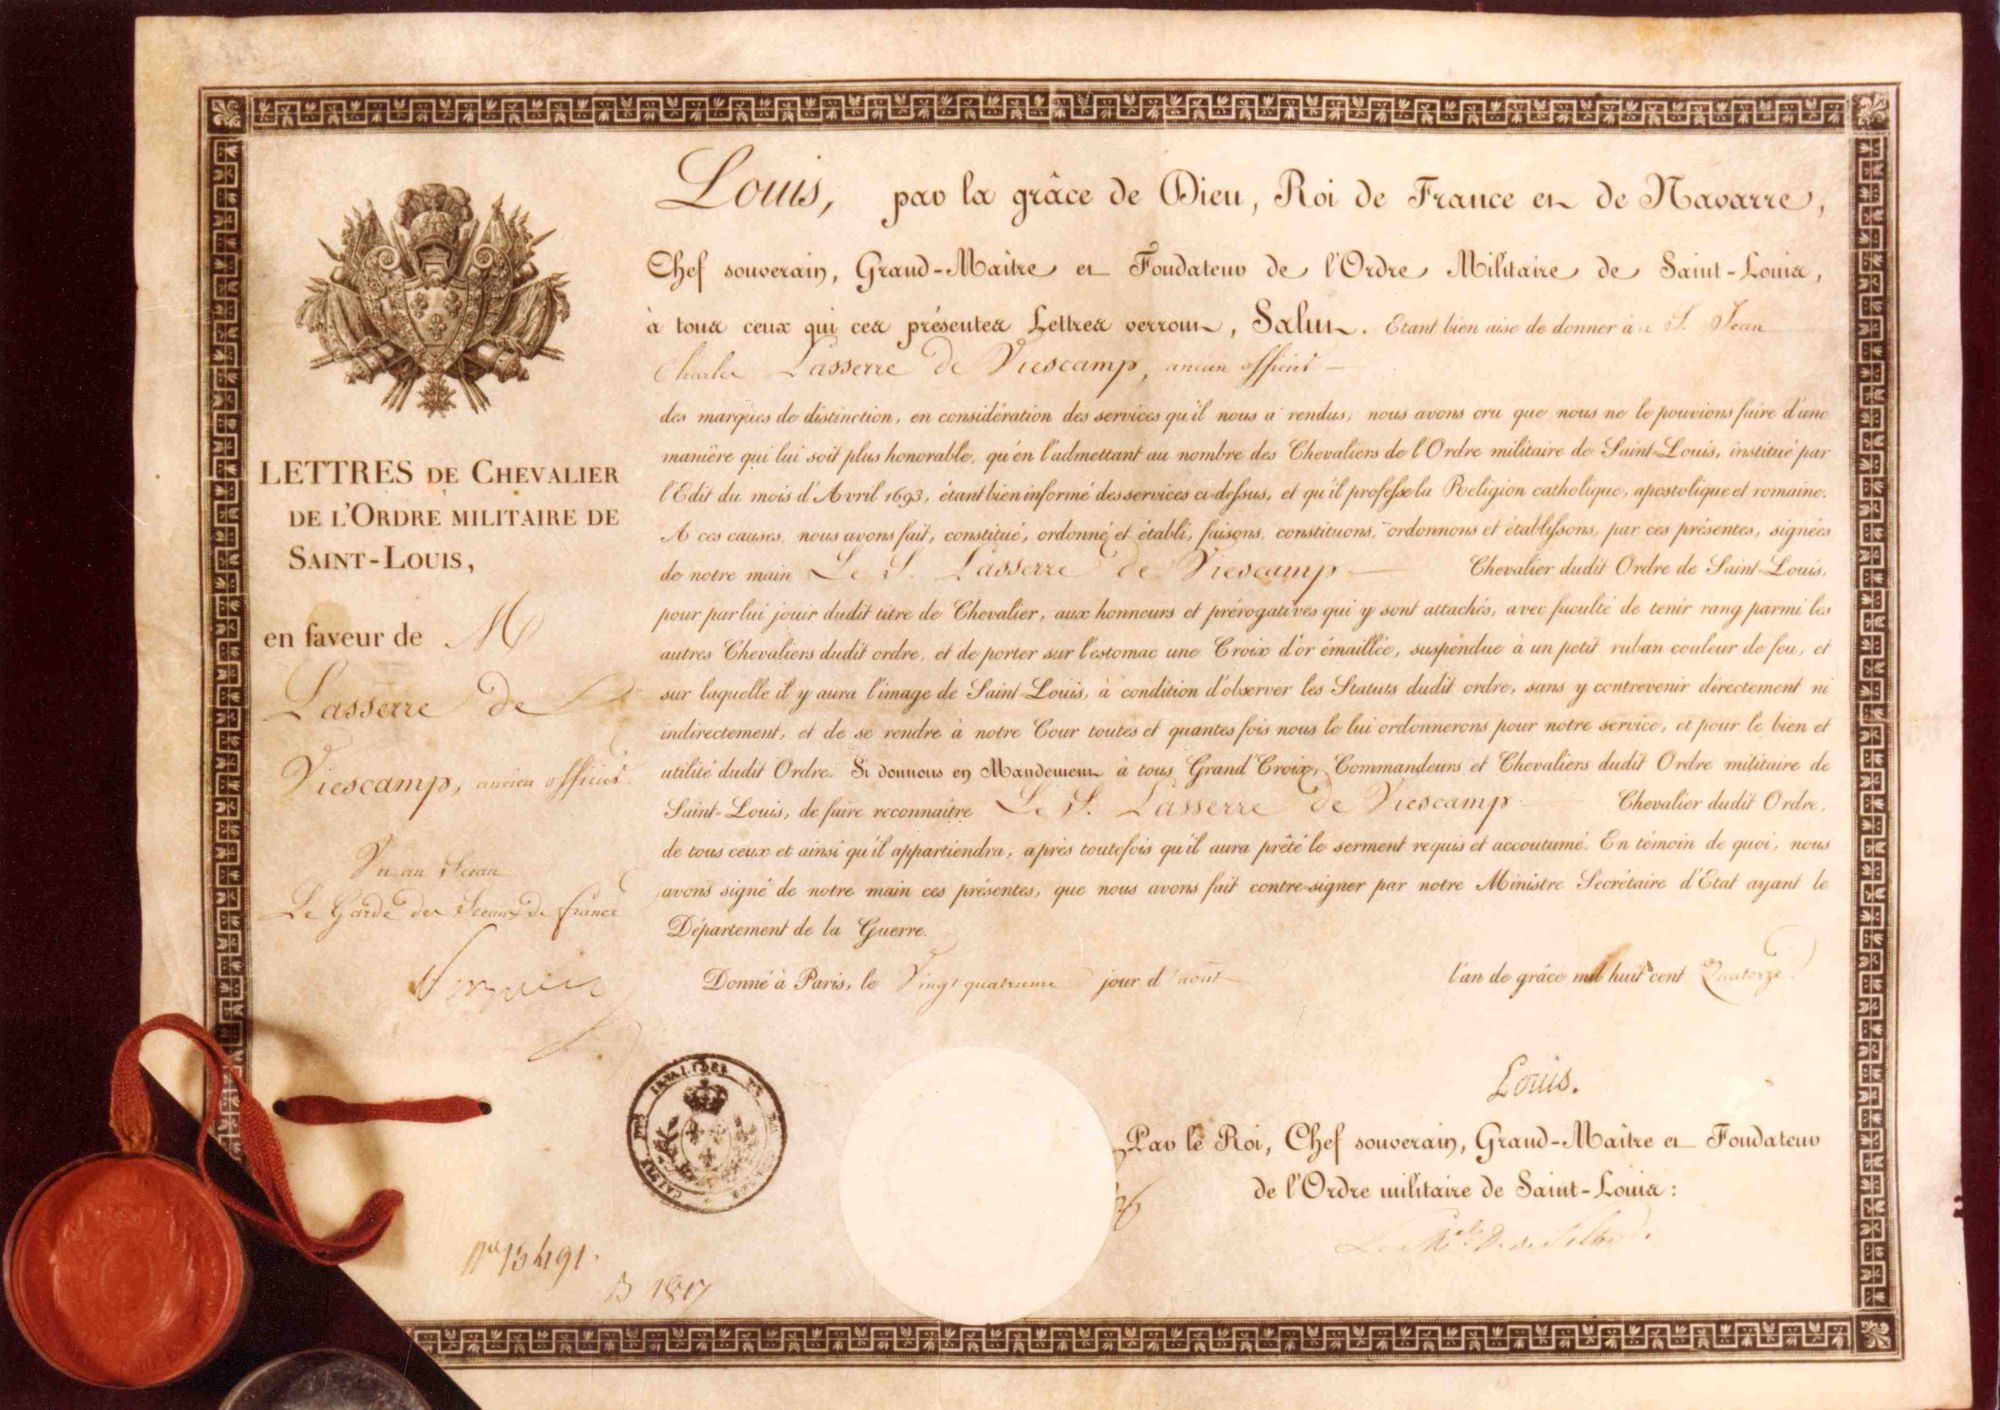 LETTRES DE CHEVALIER
DE L'ORDRE MILITAIRE DE
SAINT-LOUIS,
en faveur de M
Lasserre de
Viescamp, ancien officier
Vu au Sceau
Le Garde des Sceaux de france
Louis, par la grâce de Dieu, Roi de France et de Navarre,
Chef souverain, Grand-Maître et Fondateur de l'Ordre Militaire de Saint-Louis,
à tous ceux qui ces présentes Lettres verront, Salut. Etant bien aise de donner à S. Jean
Charles Lasserre de Viescamp, ancien officier
des marques de distinction, en considération des services qu'il nous a rendus, nous avons cru que nous ne le pouvions faire d'une
manière qui lui soit plus honorable, qu'en l'admettant au nombre des Chevaliers de l'Ordre militaire de Saint-Louis, institué par
l'Edit du mois d'Avril 1693, étant bien informé des services ci-dessus, et qu'il professe la Religion catholique, apostolique et romaine.
A ces causes, nous avons fait, constitué, ordonné et établi, faisons, constituons, ordonnons et établissons, par ces présentes, signées
de notre main Le S. Lasserre de Viescamp Chevalier dudit Ordre de Saint-Louis,
pour par lui jouir dudit titre de Chevalier, aux honneurs et prérogatives qui y sont attachés, avec faculté de tenir rang parmi les
autres Chevaliers dudit ordre, et de porter sur l'estomac une Croix d'or émaillée, suspendue à un petit ruban couleur de feu, et
sur laquelle il y aura l'image de Saint-Louis, à condition d'observer les Statuts dudit ordre, sans y contrevenir directement ni
indirectement, et de se rendre à notre Cour toutes et quantes fois nous le lui ordonnerons pour notre service, et pour le bien et
utilité dudit Ordre. Si donnons en Mandement à tous Grand'Croix, Commandeurs et Chevaliers dudit Ordre militaire de
Saint-Louis, de faire reconnaître Le S. Lasserre de Viescamp Chevalier dudit Ordre,
de tous ceux et ainsi qu'il appartiendra, après toutefois qu'il aura prêté le serment requis et accoutumé. En témoin de quoi, nous
avons signé de notre main ces présentes, que nous avons fait contre-signer par notre Ministre Secrétaire d'Etat ayant le
Département de la Guerre.
Donné à Paris, le Vingt quatrieme jour d'aout l'an de grâce mil huit cent Quatorze.
Louis.
Par le Roi, Chef souverain, Grand-Maître et Fondateur
de l'Ordre militaire de Saint-Louis:
INVALIDES DE LA
CAISSE DES
15491.
B 1817